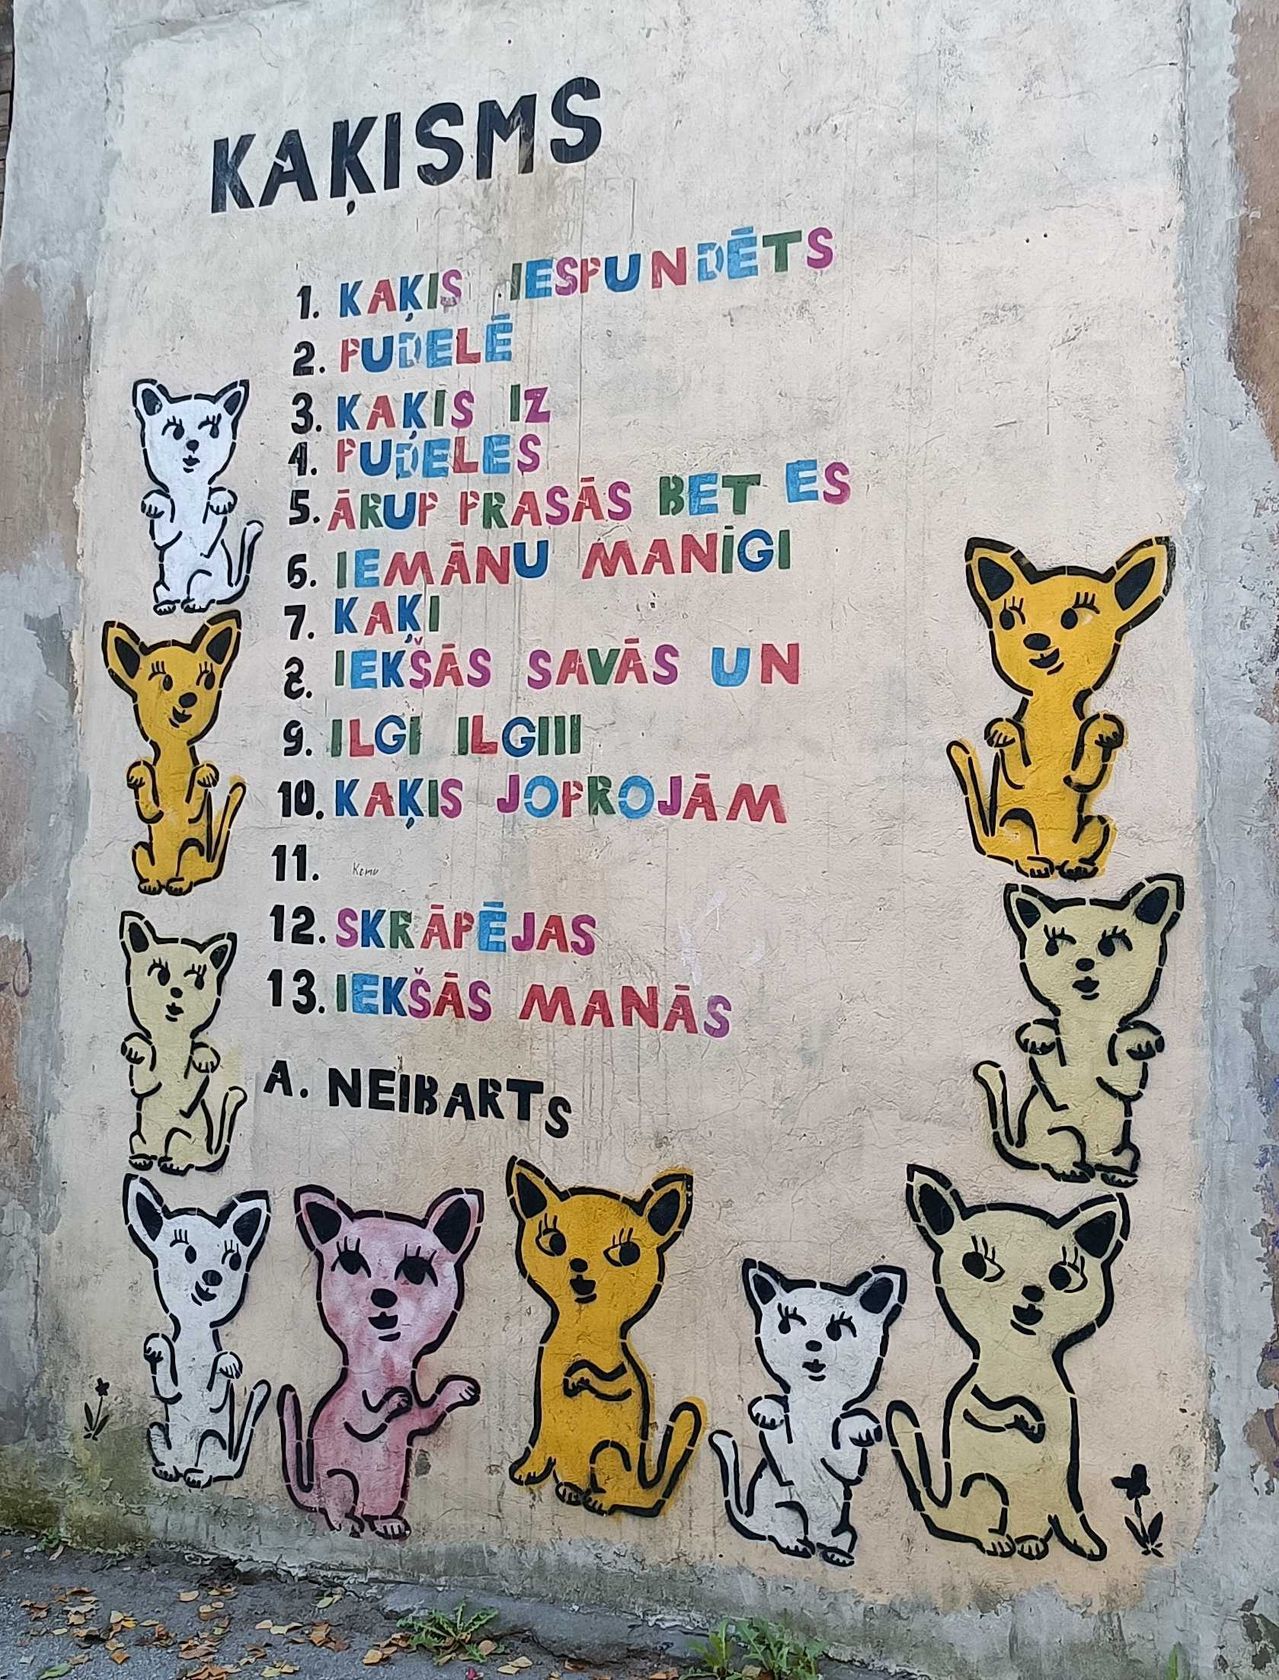 KAĶISMS
1. KAĶIS IESPUNDĒTS
2. PUDELĒ
3. KAĶIS IZ
4. PUDELES
5. ĀRUP PRASĀS BET ES
6. IEMĀNU MANĪGI
7. KAĶI
8. IEKŠĀS SAVĀS UN
9. ILGI ILGIII
10. KAĶIS JOPROJĀM
11.
12. SKRĀPĒJAS
13. IEKŠĀS MANĀS
A. NEIBARTS